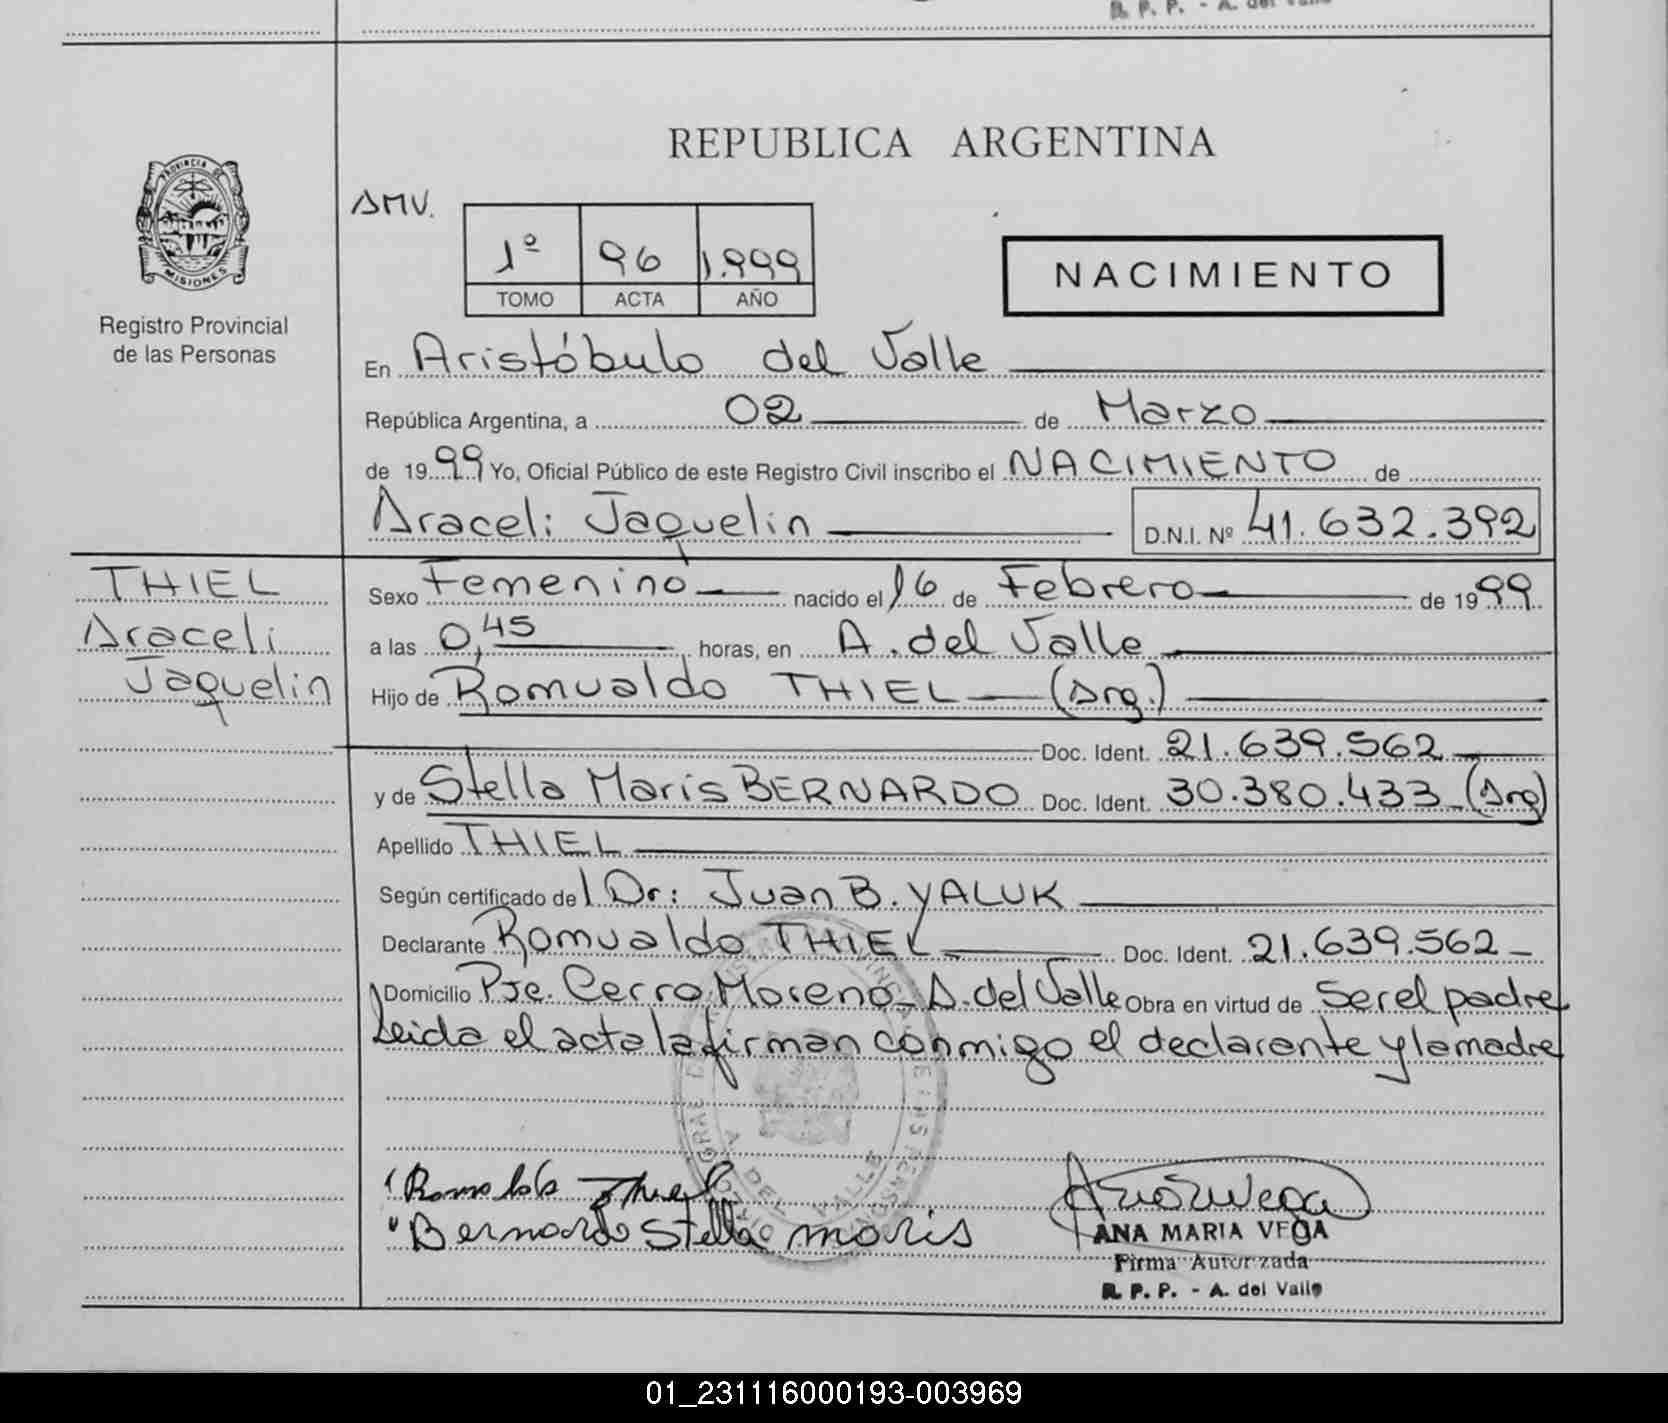 R. P. P. - A. del Valle
PROVINCIA DE
MISIONES
Registro Provincial
de las Personas
REPUBLICA ARGENTINA
AMV.
1º 96 1.999
TOMO ACTA AÑO
NACIMIENTO
En Aristóbulo del Valle
República Argentina, a 02 de Marzo
de 1999 Yo, Oficial Público de este Registro Civil inscribo el NACIMIENTO de
Araceli Jaquelin D.N.I. Nº 41.632.392
THIEL
Araceli
Jaquelin
Sexo Femenino nacido el 16 de Febrero de 1999
a las 0,45 horas, en A. del Valle
Hijo de Romualdo THIEL (Arg.)
Doc. Ident. 21.639.562
y de Stella Maris BERNARDO Doc. Ident. 30.380.433 (Arg)
Apellido THIEL
Según certificado del Dr: Juan B. YALUK
Declarante Romualdo THIEL Doc. Ident. 21.639.562
Domicilio Pje. Cerro Moreno - A. del Valle Obra en virtud de Ser el padre
Leida el acta la firman conmigo el declarante y la madre
Thiel
Bernardo Stella maris
ANA MARIA VEGA
Firma Autorizada
R. P. P. - A. del Valle
01_231116000193-003969